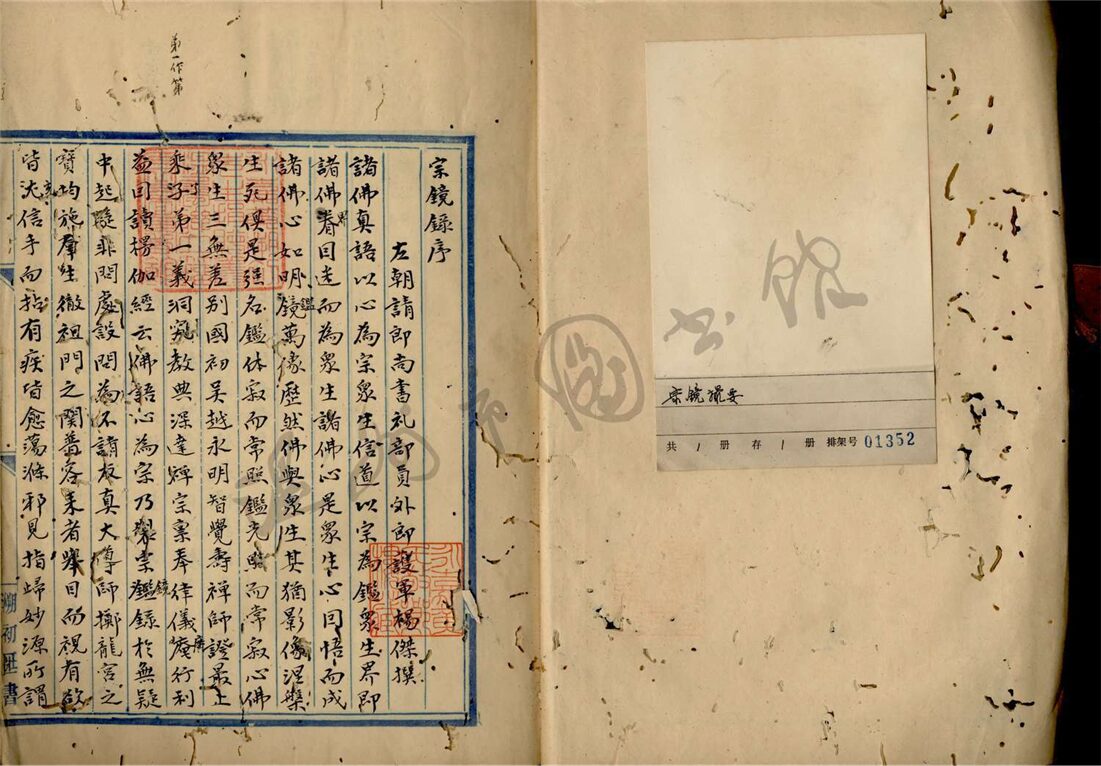 宗镜撮要
共 1 册 存 1 册 排架号 01352
第一作第
宗鏡錄序
左朝請郎尚書礼部員外郎護軍楊傑撰
諸佛真語以心為宗衆生信道以宗為鑑衆生界即
諸佛界因迷而為衆生諸佛心是衆生心因悟而成
諸佛心如明鏡萬像歷然佛與衆生其猶影像涅槃
生死俱是强名鑑体寂而常照鑑光照而常寂心佛
衆生三無差别國初吴越永明智覺壽禅師證最上
乘了第一義洞究教典深達禅宗禀奉律儀廣行利
益因讀楞伽經云佛語心為宗乃製宗鑑錄於無疑
中起疑非問處設問為不請友真大導師擲龍宫之
寶均施羣生徹祖門之関普容来者舉目而視有欲
皆充信手而拈有疾皆愈蕩滌邪見指歸妙源所謂